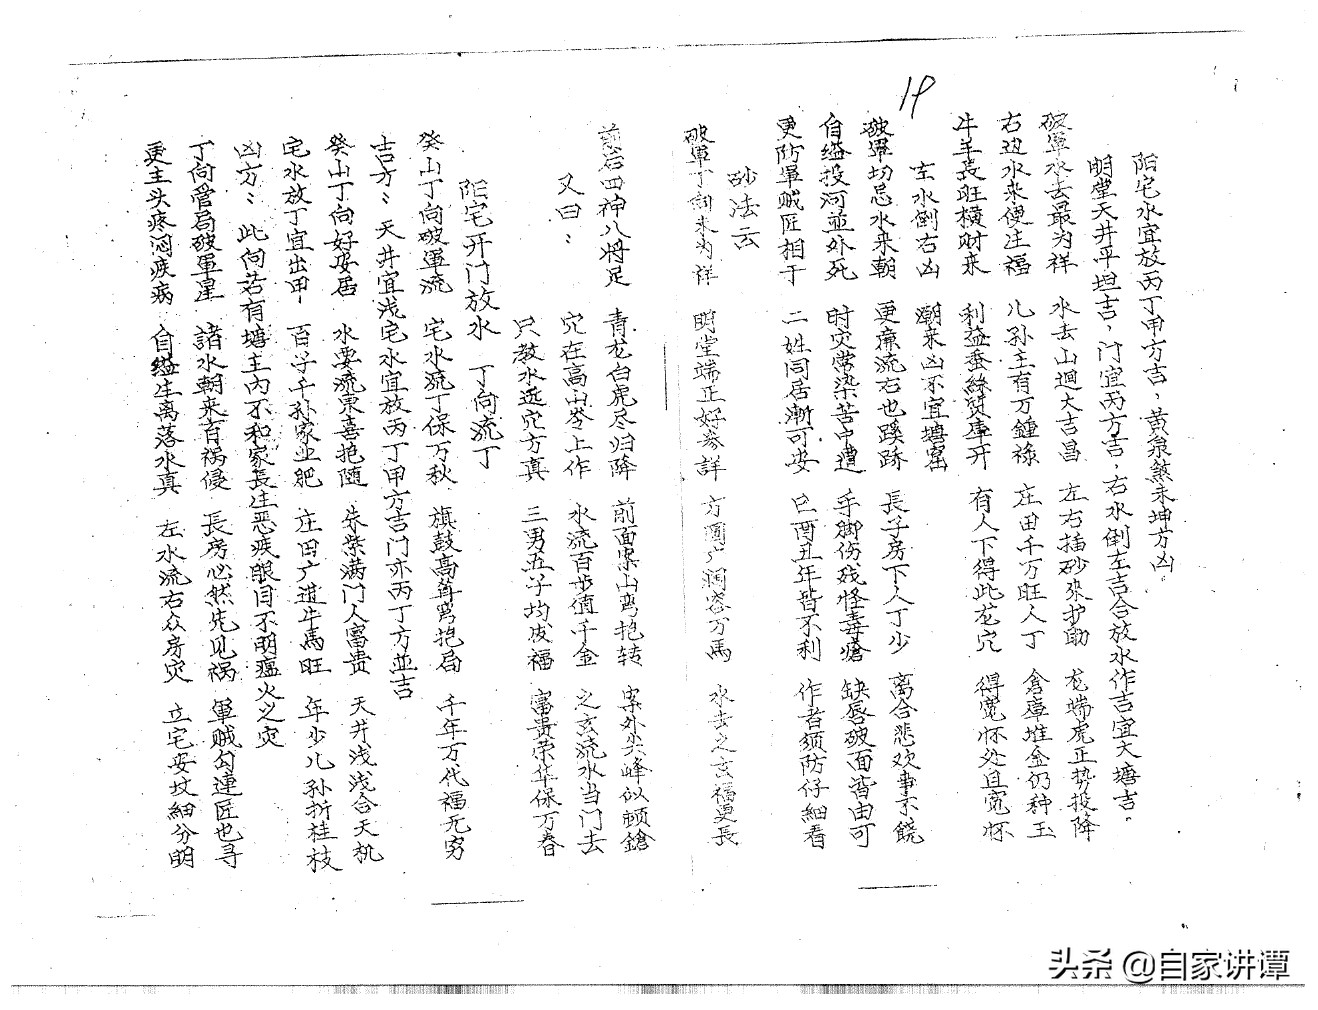 19
阳宅水宜放丙丁甲方吉，黄泉煞未坤方凶
明堂天井平坦吉，门宜丙方吉，右水倒左吉合放水作吉宜大塘吉。
破軍水去最为祥 水去山迴大吉昌 左右插砂來护助 龙端虎正势投降
右边水来便注福 儿孙主有万鍾禄 庄田千万旺人丁 倉庫堆金仍种玉
牛羊장旺横财来 利益蚕絲贤庫开 有人下得此龙穴 得宽怀处且宽怀
左水倒右凶 潮来凶不宜塘窑
破軍切忌水来朝 更廉流右也蹊跷 長子房下人丁少 离合悲欢事不饒
自缢投河並外死 时灾常染苦中遭 手脚伤残怪毒瘡 缺唇破面皆由可
更防軍贼匠相于 二姓同居漸可安 巳酉丑年皆不利 作者须防仔細看
砂法云
破軍丁訶未为祥 明堂端正好参詳 方圆广阔容万馬 水去之玄福更長
前后四神八將足 青龙白虎尽归降 前面案山弯抱转 案外尖峰似顿鎗
又曰： 穴在高山岺上作 水流百步值千金 之玄流水当门去
只教水远穴方真 三男五子均发福 富贵荣华保万春
阳宅开门放水 丁向流丁
癸山丁向破軍流 宅水流丁保万秋 旗鼓高角弯抱局 千年万代福无穷
吉方：天井宜浅宅水宜放丙丁甲方吉门亦丙丁方並吉
癸山丁向好安居 水要流東喜抱随 朱紫满门人富贵 天井浅浅合天机
宅水放丁宜出甲 百子千孙家业肥 庄田广进牛馬旺 年少儿孙折桂枝
凶方：此向若有塘主內不和家長注恶疾眼目不明瘟火之灾
丁向管局破軍星 諸水朝来百祸侵 長房必然先见祸 軍贼勾連匠也寻
更主头疼闷疾病 自缢生离落水真 左水流右众房灾 立宅安坟細分明
头条 @自家讲谭